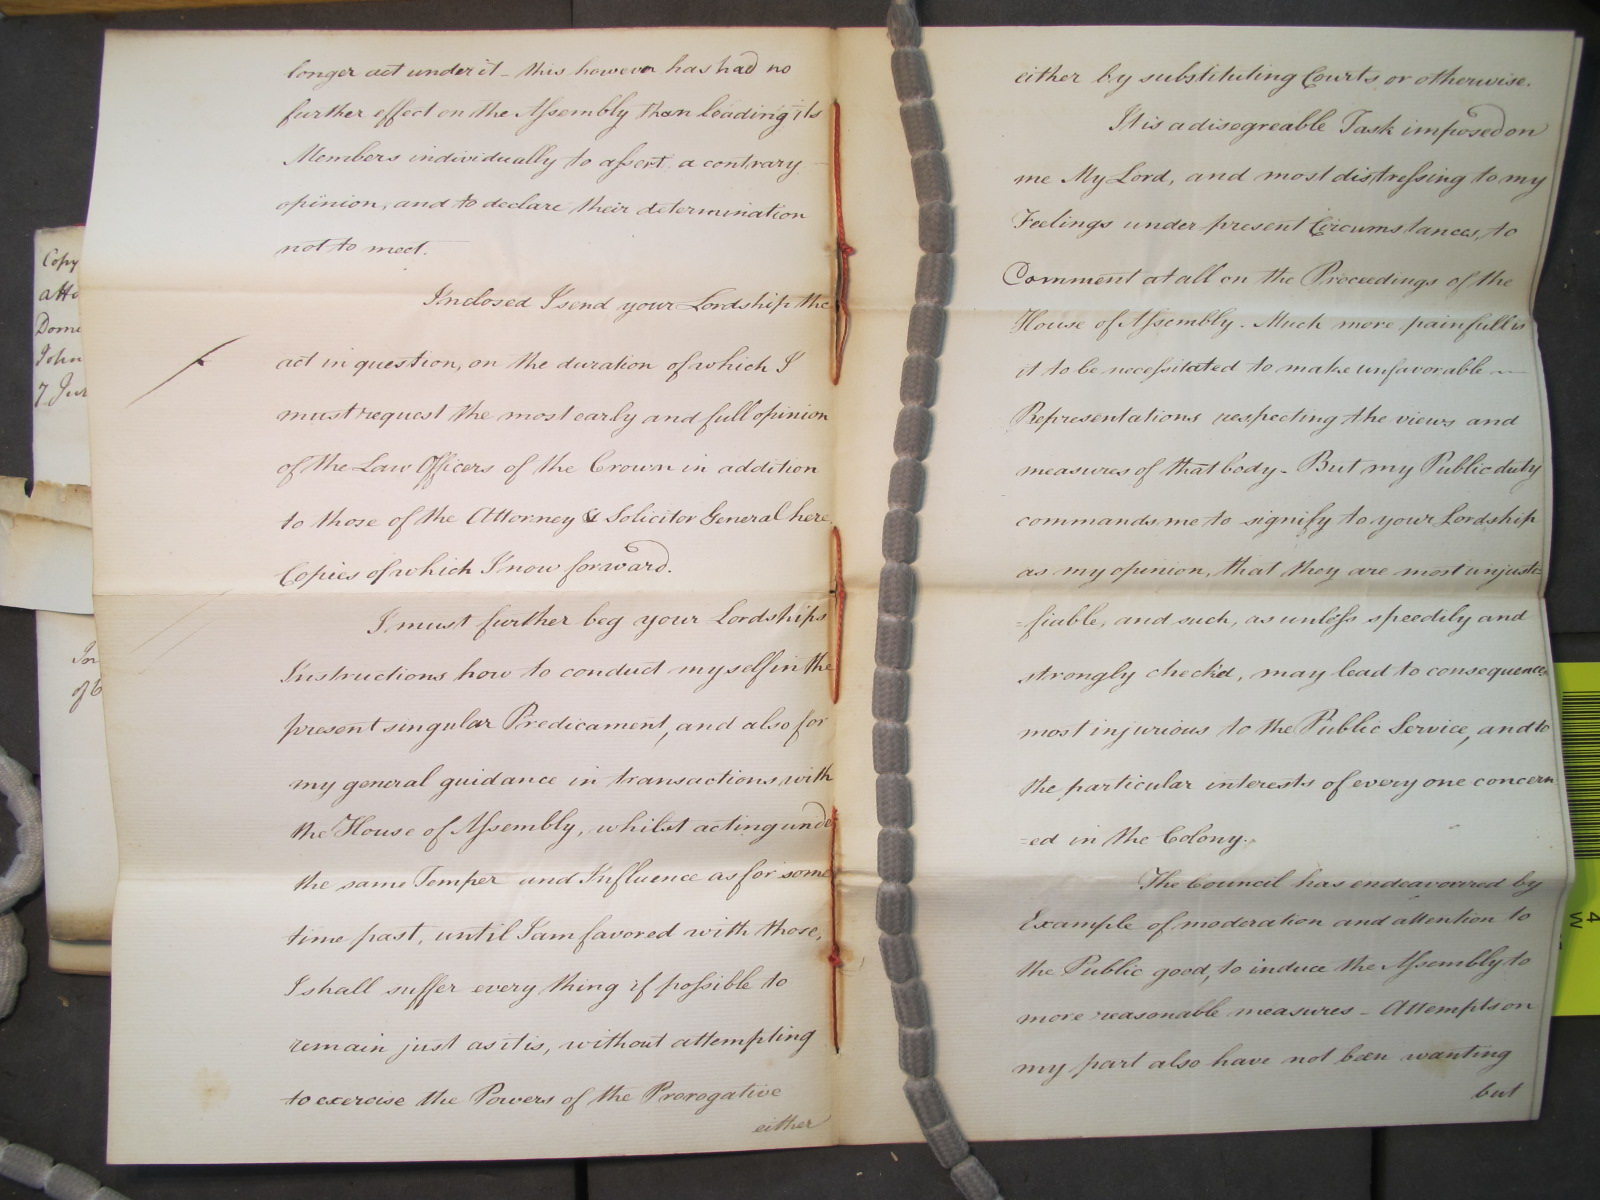 longer act under it – this however has had no
further effect on the Assembly than leading its
Members individually to assert a contrary
opinion, and to declare their determination
not to meet.
Inclosed I send your Lordship the
act in question, on the duration of which I
must request the most early and full opinion
of the Law Officers of the Crown in addition
to those of the Attorney & Solicitor General here,
Copies of which I now forward.
I must further beg your Lordships
Instructions how to conduct myself in the
present singular Predicament, and also for
my general guidance in transactions with
the House of Assembly, whilst acting unde
the same Temper and Influence as for some
time past, until I am favored with those,
I shall suffer every thing if possible to
remain just as it is, without attempting
to exercise the Powers of the Prerogative
either
either by substituting Courts or otherwise.
It is a disagreable Task imposed on
me My Lord, and most distressing to my
Feelings under present Circumstances, to
Comment at all on the Proceedings of the
House of Assembly. Much more painfull is
it to be necessitated to make unfavorable —
Representations respecting the views and
measures of that body – But my Public duty
commands me to signify to your Lordship
as my opinion, that they are most unjusti=
=fiable, and such, as unless speedily and
strongly check'd, may lead to consequences
most injurious to the Public Service, and to
the particular interests of every one concern
=ed in the Colony.
The Council has endeavoured by
Example of moderation and attention to
the Public good, to induce the Assembly to
more reasonable measures – Attempts on
my part also have not been wanting
but
Copy
atte
Dome
John
7 Jun
In
of C
4
W